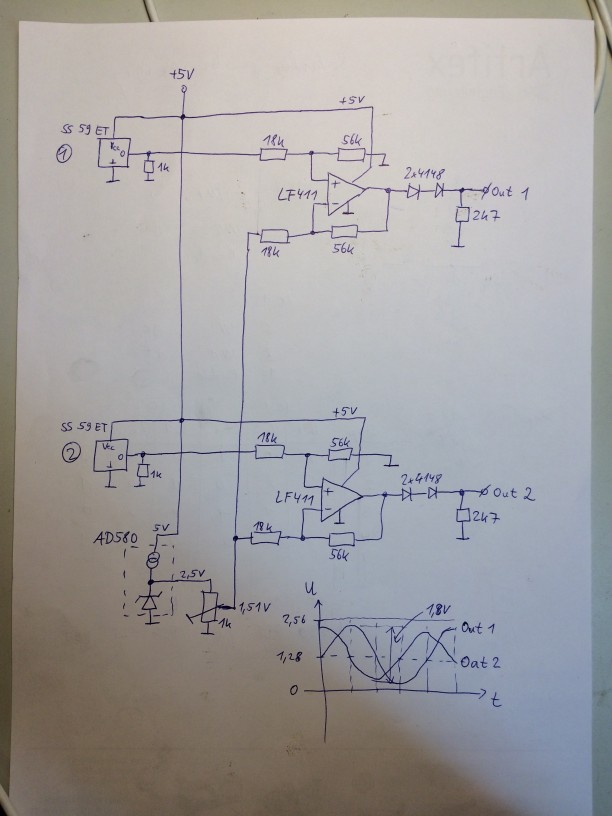 +5V
+5V
SS 59 ET
1
Vcc
O
1k
18k
56k
LF411
+
-
2x4148
Out 1
2k7
18k
56k
+5V
SS 59 ET
2
Vcc
O
1k
18k
56k
LF411
+
-
2x4148
Out 2
2k7
18k
56k
AD580
5V
2,5V
1,51V
1k
U
2,56
1,8V
Out 1
1,28
Out 2
0
t